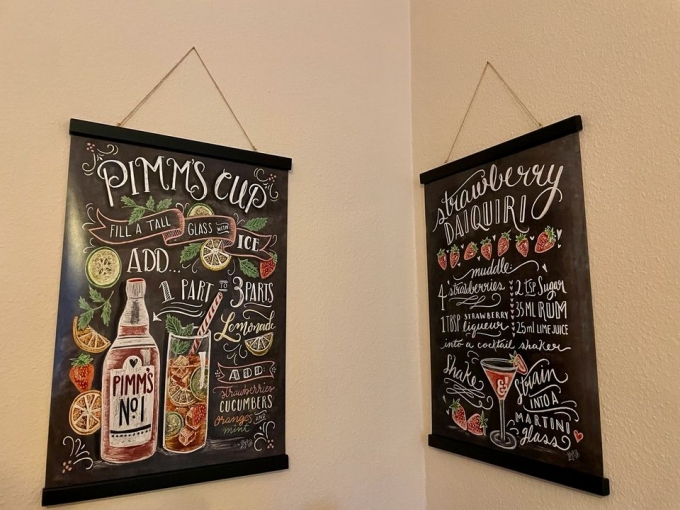 PIMM'S CUP
FILL A TALL GLASS WITH ICE
ADD...
1 PART TO 3 PARTS
Lemonade
ADD
strawberries
CUCUMBERS
oranges AND
mint
PIMM'S
No 1
strawberry
DAIQUIRI
muddle
4 strawberries
1 TBSP STRAWBERRY
liqueur
2 TSP Sugar
35 ML RUM
25ml LIME JUICE
into a cocktail shaker
Shake
&
Strain
INTO A
MARTINI
glass